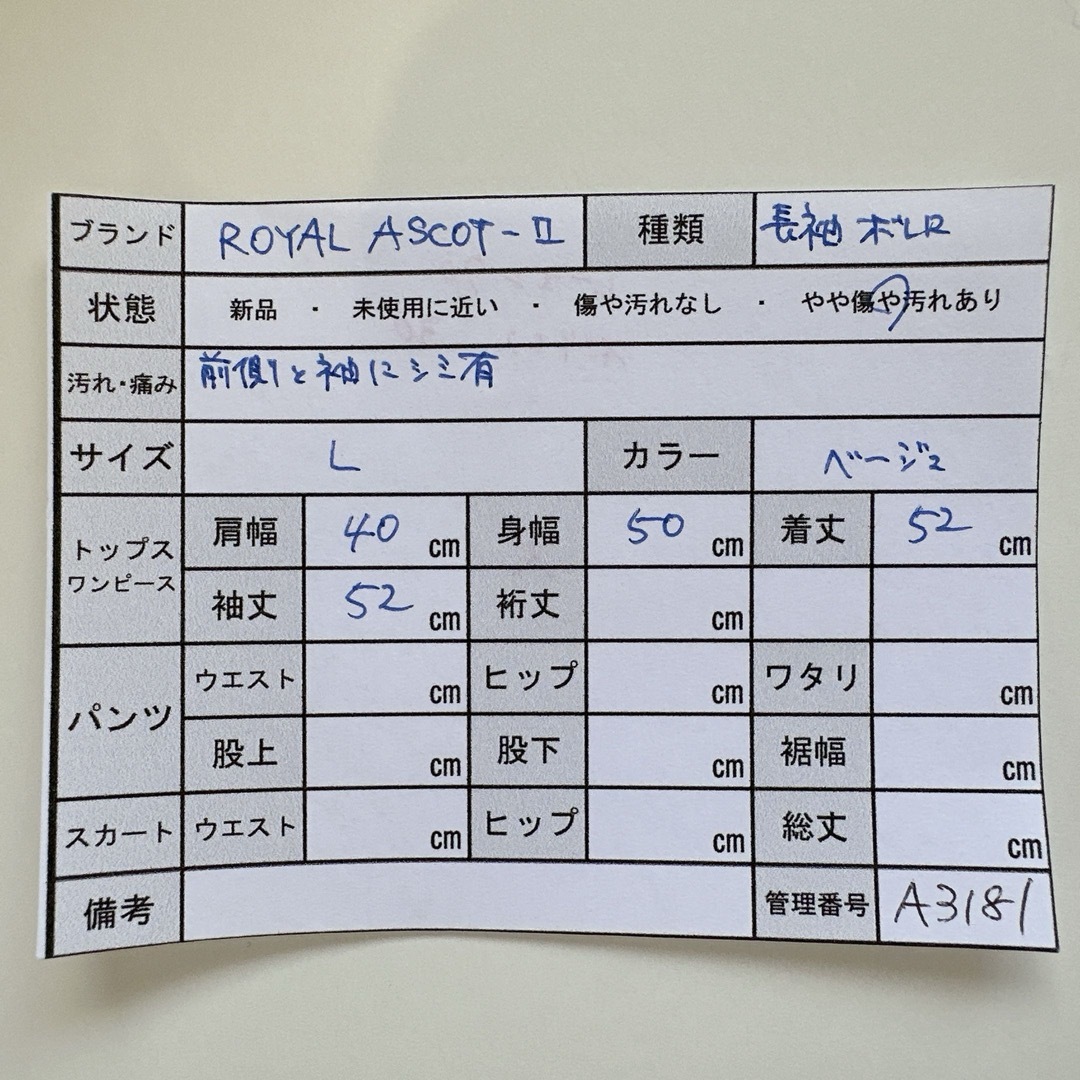 ブランド ROYAL ASCOT-II 種類 長袖 ボレロ
状態 新品 ・ 未使用に近い ・ 傷や汚れなし ・ やや傷や汚れあり
汚れ・痛み 前側と袖にシミ有
サイズ L カラー ベージュ
トップス ワンピース 肩幅 40 cm 身幅 50 cm 着丈 52 cm
袖丈 52 cm 裄丈 cm
パンツ ウエスト cm ヒップ cm ワタリ cm
股上 cm 股下 cm 裾幅 cm
スカート ウエスト cm ヒップ cm 総丈 cm
備考 管理番号 A3181